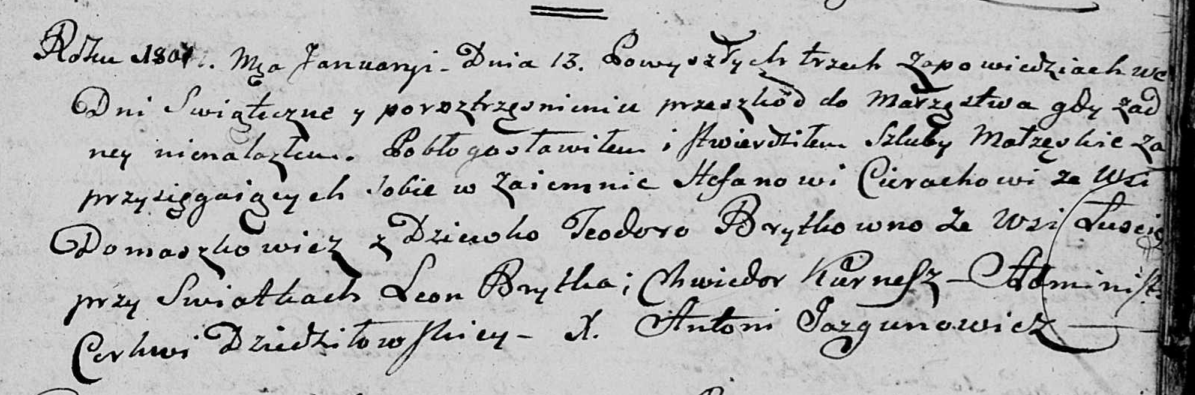 Roku 1801. Mca Januaryi - Dnia 13. Powyszłych trzech zapowiedziach we
Dni Swiąteczne y poroztrzęsnieniu przeszkód do Małzęstwa gdy zad
ney nienalazłem. Pobłogosławiłem i stwierdziłem Szluby Małzęskie za
przysięgaiących sobie w zaiemnie Stefanowi Cierachowi ze Wsi
Domaszkowicz z Dziewko Teodoro Brytkowno ze Wsi
przy Swiatkach Leon Brytka i Chwiedor Kurnesz - Administ.
Cerkwi Dziedziłowskiey - X. Antoni Jazgunowicz